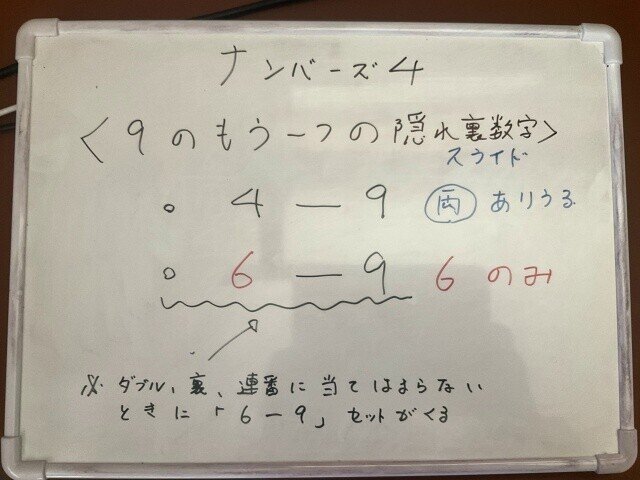 ナンバーズ4
<9のもう一つの隠れ裏数字>
スライド
○ 4 ― 9 両 ありうる
○ 6 ― 9 6のみ
※ ダブル、裏、連番に当てはまらない
ときに「6ー9」セットがくる